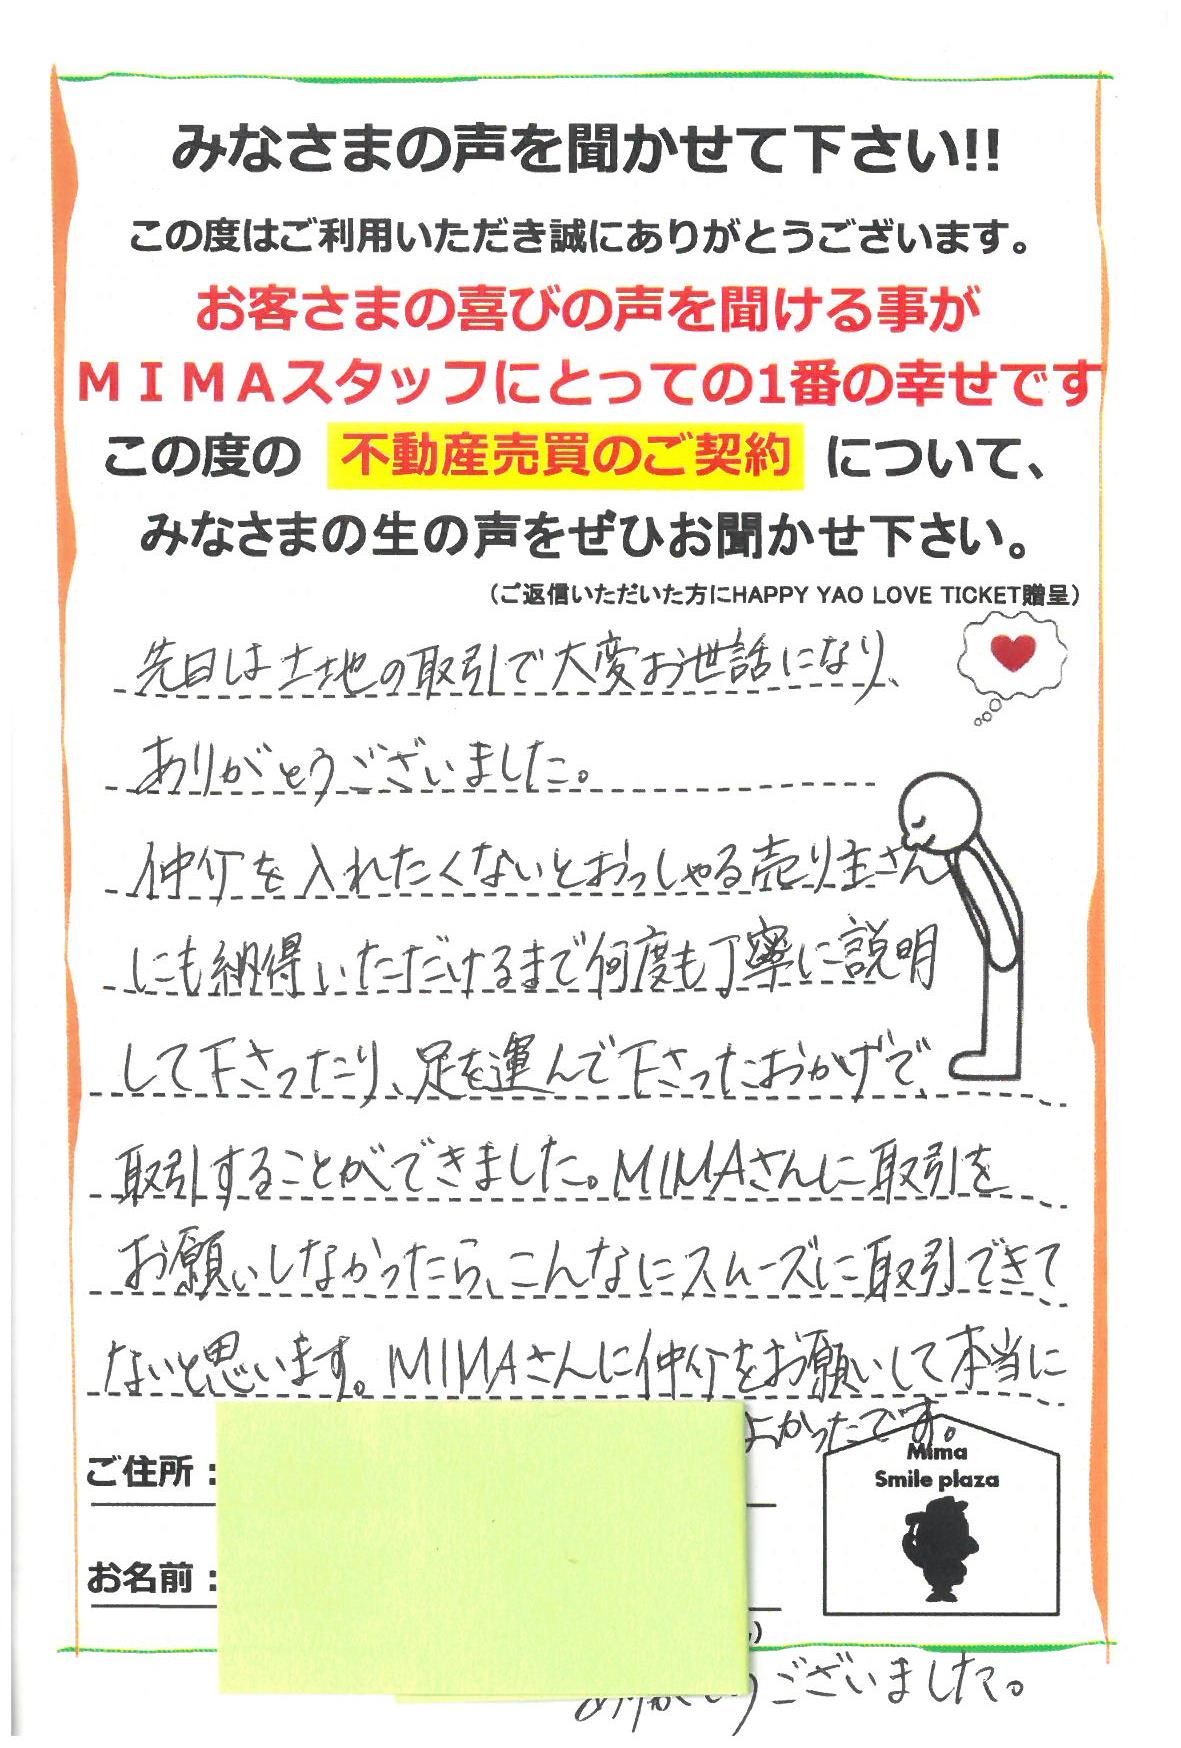 みなさまの声を聞かせて下さい!!
この度はご利用いただき誠にありがとうございます。
お客さまの喜びの声を聞ける事が
ＭＩＭＡスタッフにとっての1番の幸せです
この度の 不動産売買のご契約 について、
みなさまの生の声をぜひお聞かせ下さい。
（ご返信いただいた方にHAPPY YAO LOVE TICKET贈呈）
先日は土地の取引で大変お世話になり、
ありがとうございました。
仲介を入れたくないとおっしゃる売り主さん
にも納得いただけるまで何度も丁寧に説明
して下さったり、足を運んで下さったおかげで、
取引することができました。MIMAさんに取引を
お願いしなかったら、こんなにスムーズに取引できて
ないと思います。MIMAさんに仲介をお願いして本当に
よかったです。
Mima
Smile plaza
ご住所：
お名前：
ありがとうございました。